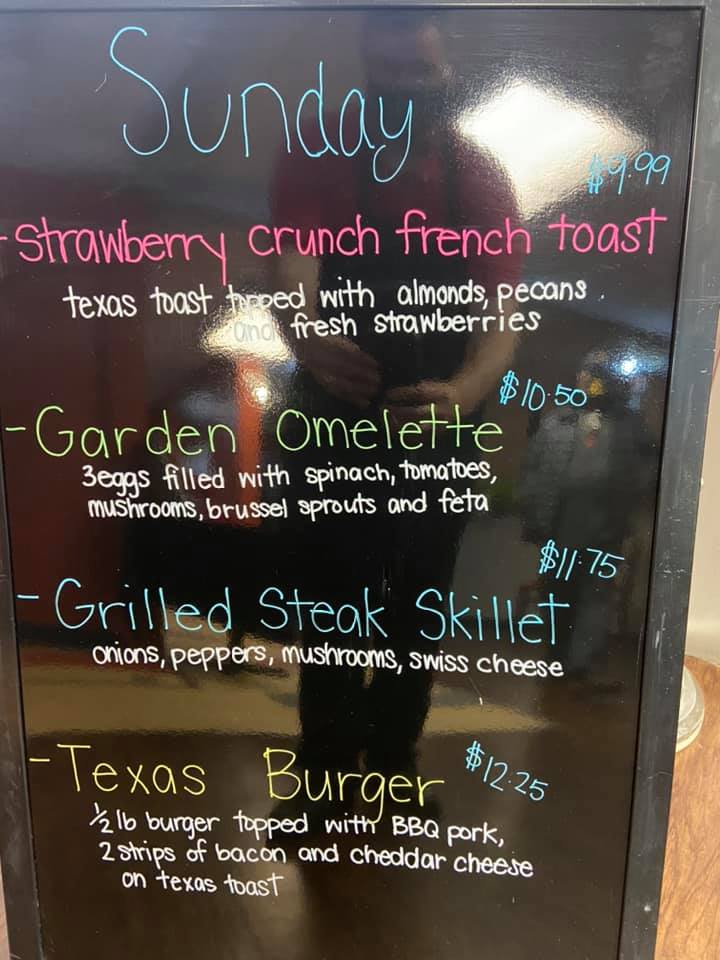 Sunday
$9.99
-Strawberry crunch french toast
texas toast topped with almonds, pecans
and fresh strawberries
$10.50
-Garden Omelette
3eggs filled with spinach, tomatoes,
mushrooms, brussel sprouts and feta
$11.75
-Grilled Steak Skillet
onions, peppers, mushrooms, swiss cheese
-Texas Burger $12.25
1/2 lb burger topped with BBQ pork,
2 strips of bacon and cheddar cheese
on texas toast